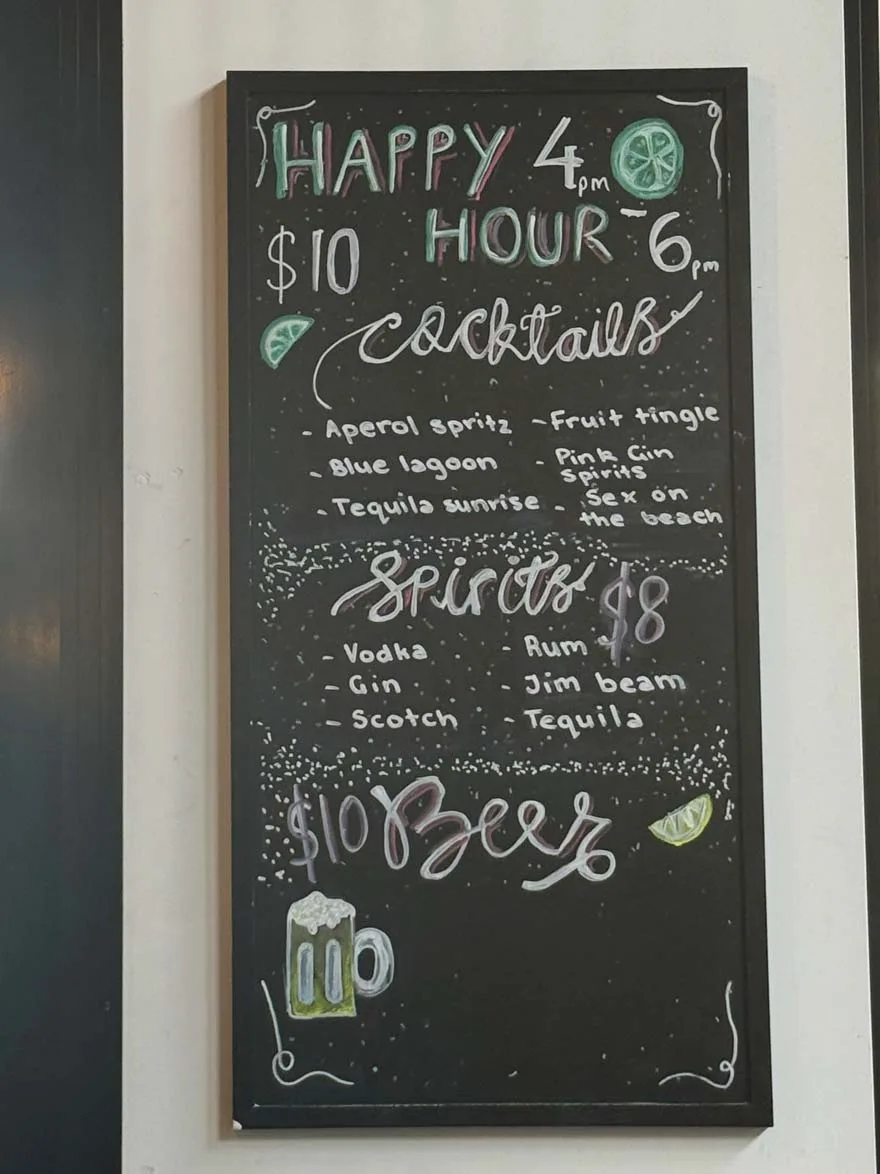 HAPPY 4pm
$10 HOUR - 6pm
Cocktails
- Aperol spritz - Fruit tingle
- Blue lagoon - Pink Gin
Spirits
- Tequila sunrise - Sex on
the beach
Spirits $8
- Vodka - Rum
- Gin - Jim beam
- Scotch - Tequila
$10 Beer